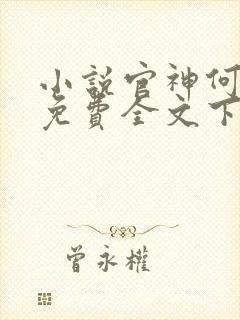 小說官神何
免費全文下
曾永權